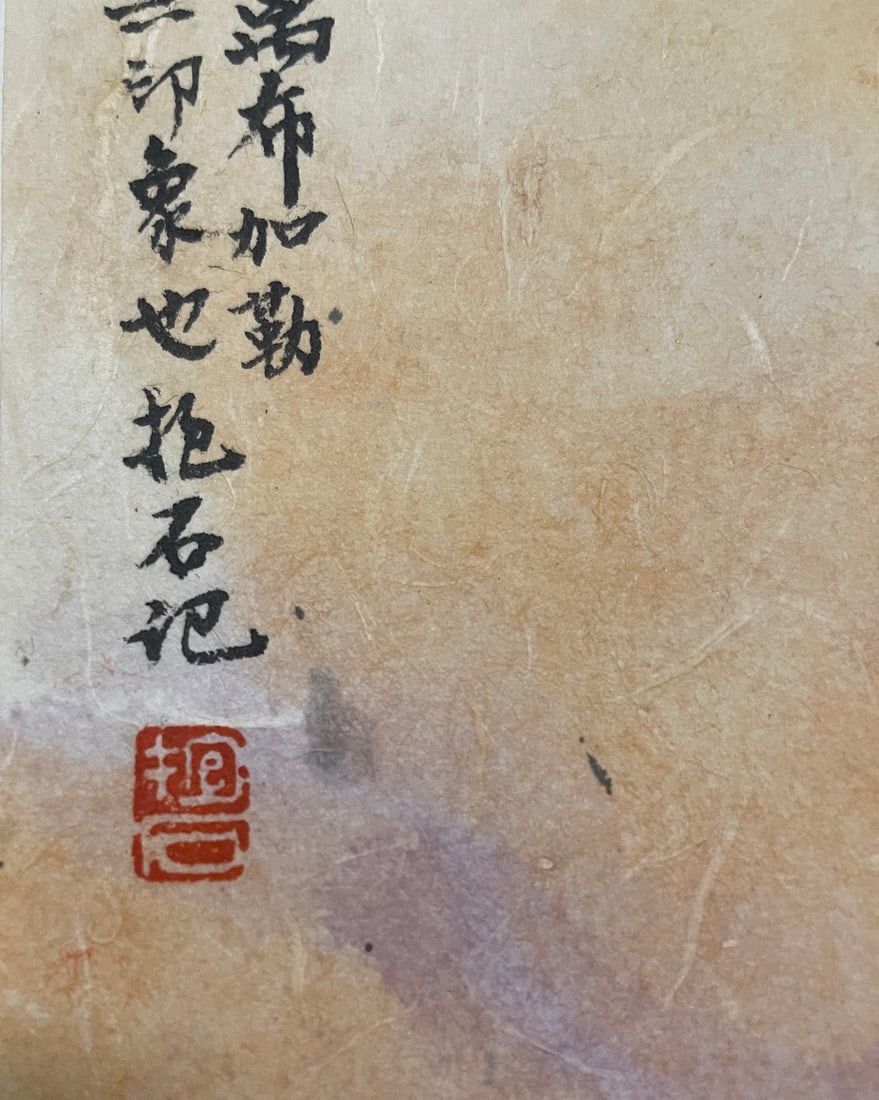 布加勒
印象也抱石记
抱石